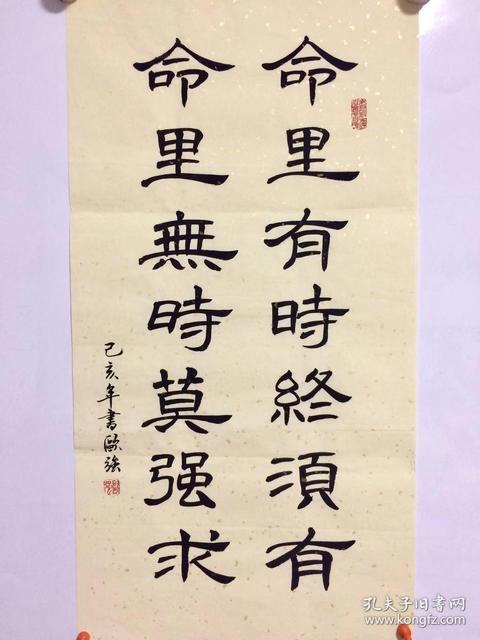 命里有時終須有
命里無時莫强求
己亥年書歐強
孔夫子旧书网
www.kongfz.com